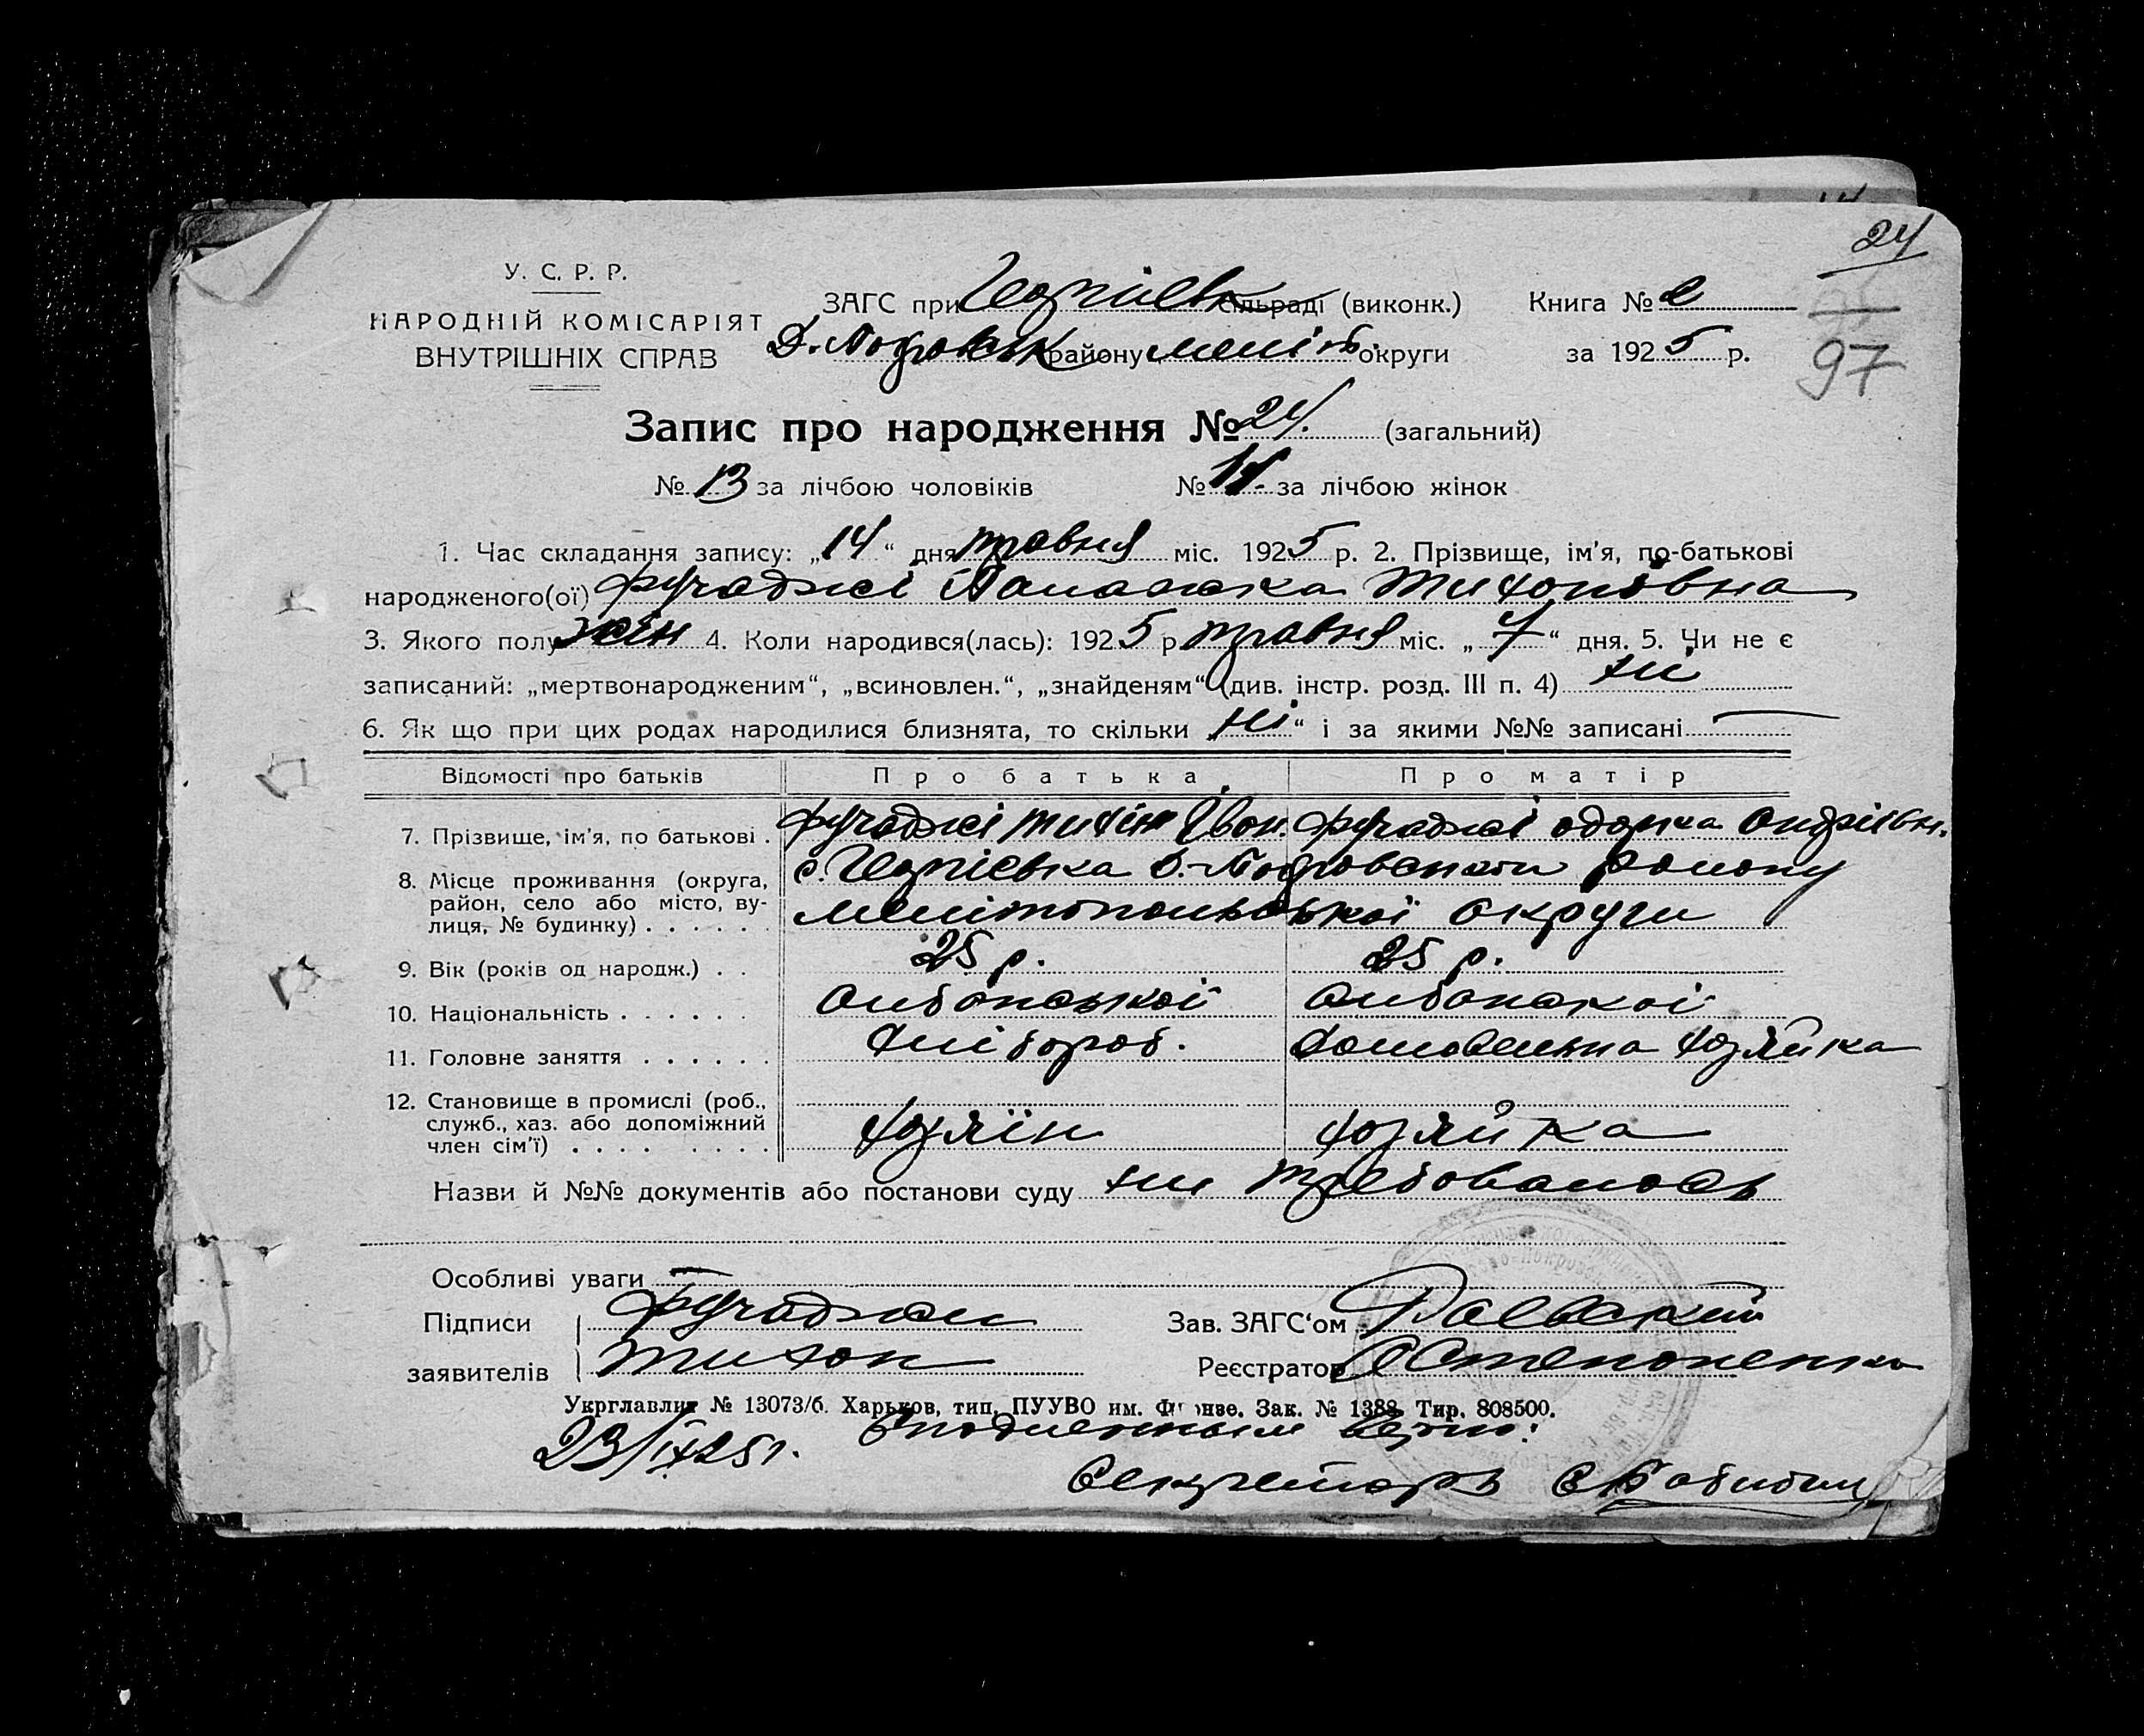 24
У. С. Р. Р.
НАРОДНІЙ КОМІСАРІЯТ
ВНУТРІШНІХ СПРАВ
ЗАГС при Георгіевк сільраді (виконк.) Книга № 2
Д. Покровськ району меліт. округи за 1925 р.
97
Запис про народження № 24. (загальний)
№ 13 за лічбою чоловіків № 11. за лічбою жінок
1. Час складання запису: „14“ дня травня міс. 1925 р. 2. Прізвище, ім'я, по-батькові
народженого(ої) Фучаджі Панаожка Тихоновна
3. Якого полу жін 4. Коли народився(лась): 1925 р. травня міс. „7“ дня. 5. Чи не є
записаний: „мертвонародженим“, „всиновлен.“, „знайденям“ (див. інстр. розд. III п. 4) ні
6. Як що при цих родах народилися близнята, то скільки „ні“ і за якими №№ записані —
Відомості про батьків Про батька Про матір
7. Прізвище, ім'я, по батькові . Фучаджі Тихін Іван. Фучаджі Одарка Андріівн.
8. Місце проживання (округа, с. Георгіевка Д.-Покровського району
район, село або місто, ву-
лиця, № будинку) . . . . . . мелітопольської округи
9. Вік (років од народж.) . . 25 р. 25 р.
10. Національність . . . . . . Албанської Албанскоі
11. Головне заняття . . . . . . Хлібороб. Домовешна хозяйка
12. Становище в промислі (роб.,
служб., хаз. або допоміжний
член сім'ї) . . . . . . . . хозяїн хозяйка
Назви й №№ документів або постанови суду ни требовалось
Особливі уваги —
Підписи Фучаджи Зав. ЗАГС‘ом Раевский
заявителів Тихон Реєстратор Степоненко
Укрглавлит № 13073/б. Харьков, тип. ПУУВО им. Фрунзе. Зак. № 1388. Тир. 808500.
23/IX 25 г. С подлинным верно:
Секретарь